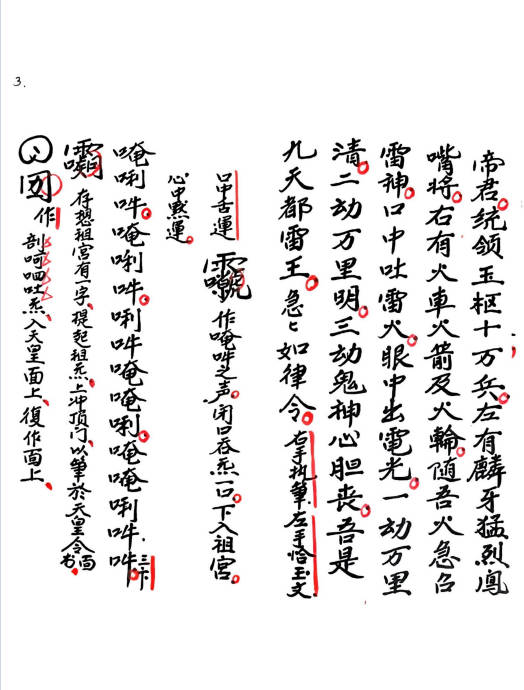 3.
帝君。统领玉枢十万兵。左有麟牙猛烈鳯
嘴将。右有火車火箭及火輪。随吾火急召
雷神。口中吐雷火。眼中出電光。一动万里
清。二动万里明。三动鬼神心胆喪。吾是
九天都雷王。急ミ如律令。右手执筆。左手恰玉文.
口中舌運
作唵吽之声。闭口吞炁一口。下入祖宫。
心中黙運。
唵唎吽。唵唎吽。唎吽唵唵唎。唵唵唎吽吽。三卞
存想祖宫有一字、提起祖炁、上冲顶门、以筆於天皇令面书、
作剖呵呬吐炁、入天皇面上、復作面上、